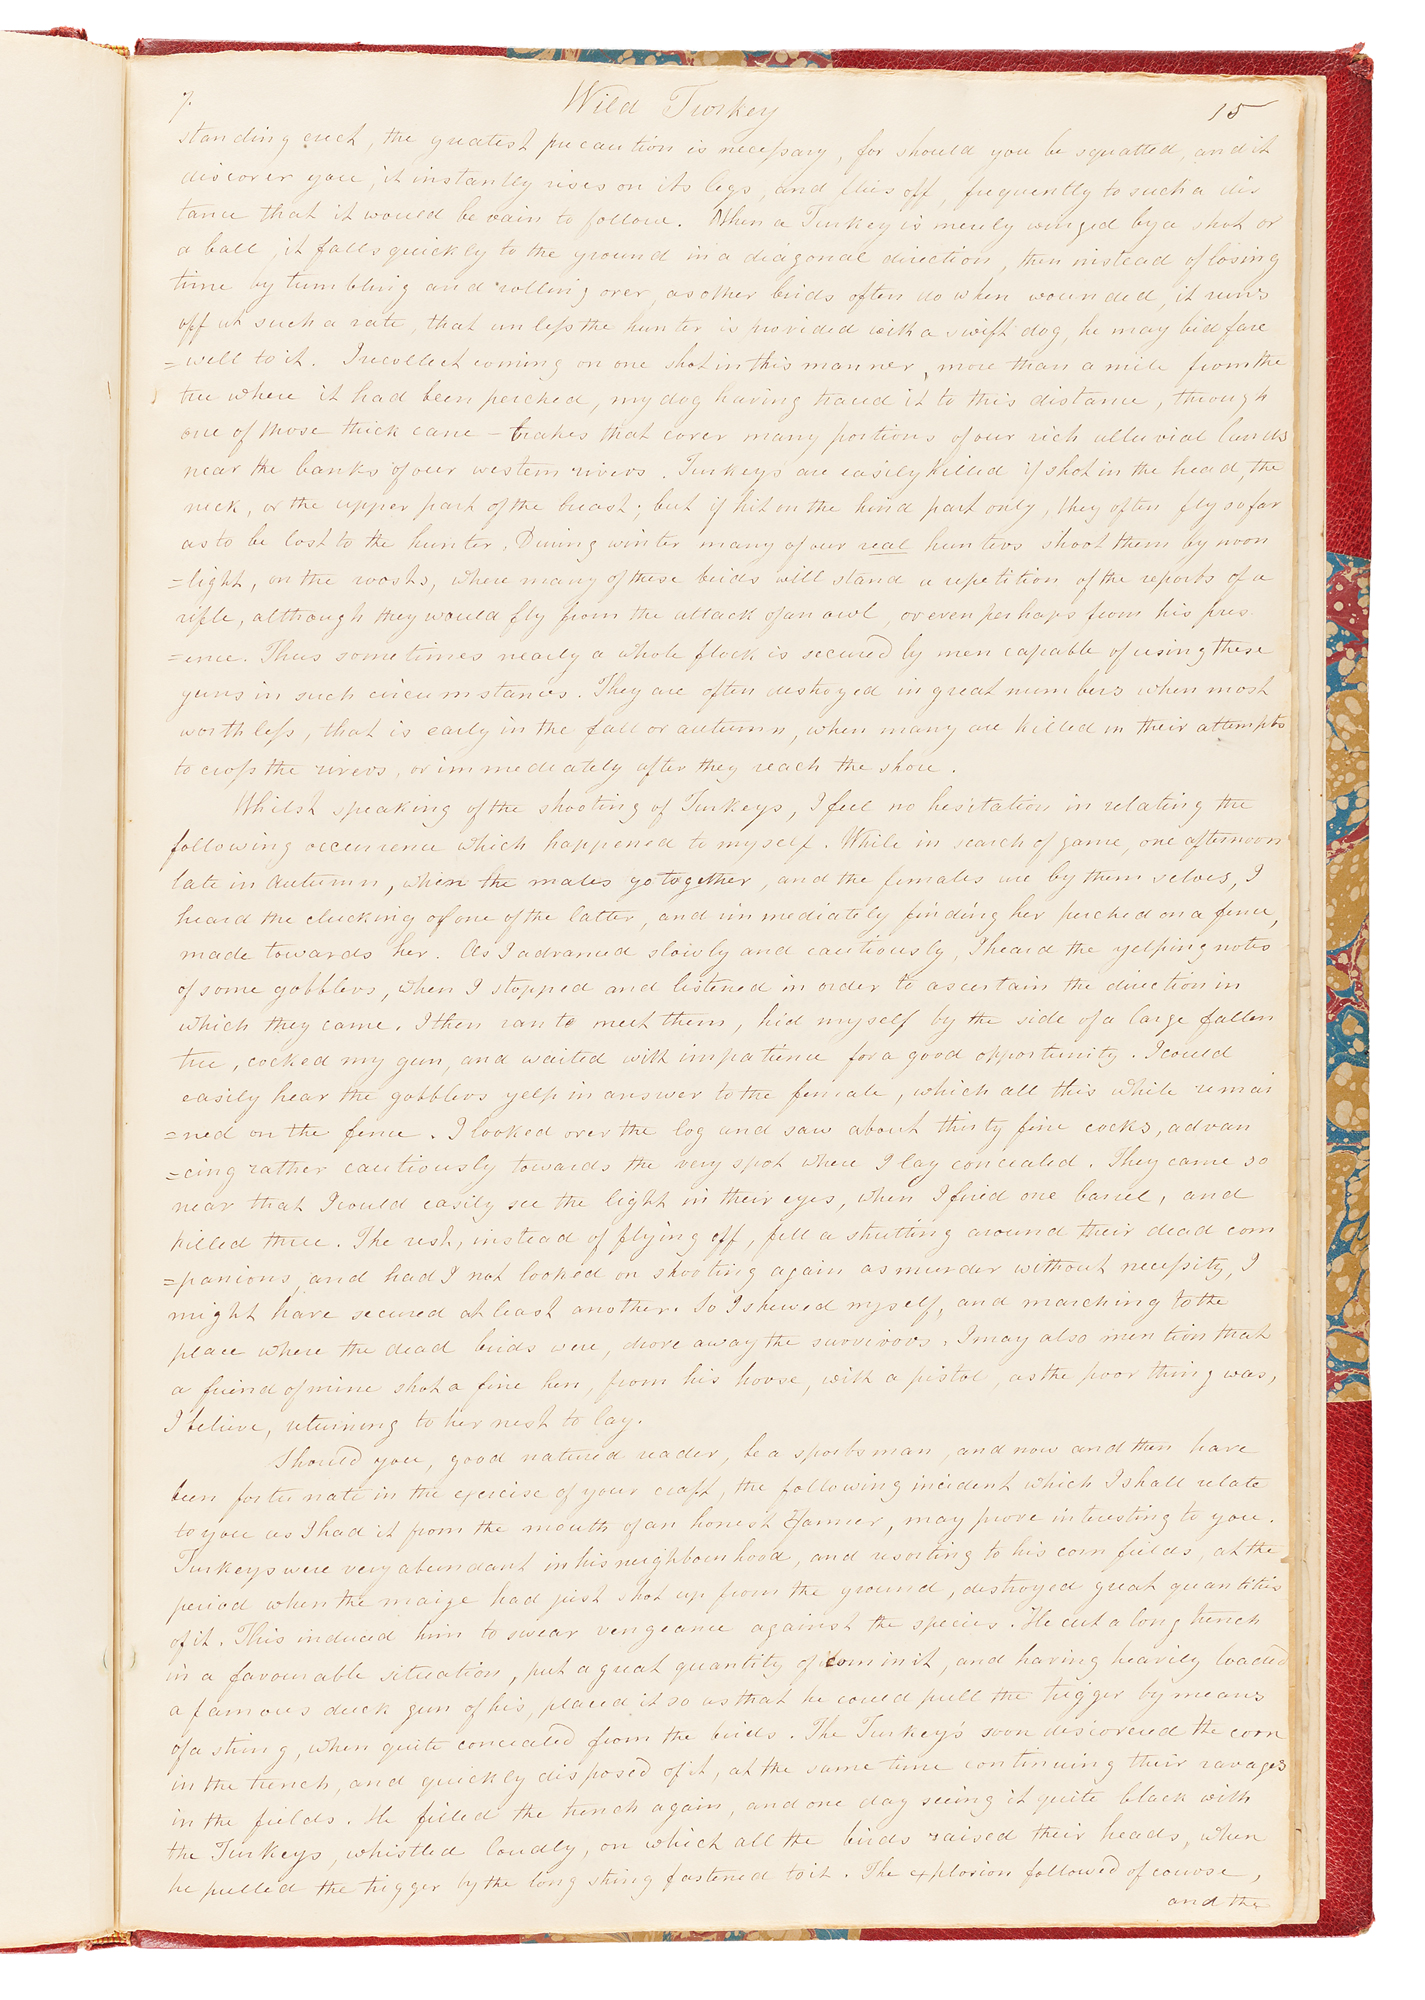 7.
Wild Turkey
15
standing erect, the greatest precaution is necessary, for should you be squatted, and it
discover you, it instantly rises on its legs, and flies off, frequently to such a dis
tance that it would be vain to follow. When a Turkey is merely winged by a shot or
a ball, it falls quickly to the ground in a diagonal direction, then instead of losing
time by tumbling and rolling over, as other birds often do when wounded, it runs
off at such a rate, that unless the hunter is provided with a swift dog, he may bid fare
=well to it. I recollect coming on one shot in this manner, more than a mile from the
tree where it had been perched, my dog having traced it to this distance, through
one of those thick cane-brakes that cover many portions of our rich alluvial lands
near the banks of our western rivers. Turkeys are easily killed if shot in the head, the
neck, or the upper part of the breast; but if hit on the hind part only, they often fly so far
as to be lost to the hunter. During winter many of our real hunters shoot them by moon
=light, on the roosts, where many of these birds will stand a repetition of the reports of a
rifle, although they would fly from the attack of an owl, or even perhaps from his pres-
=ence. Thus sometimes nearly a whole flock is secured by men capable of using these
guns in such circumstances. They are often destroyed in great numbers when most
worthless, that is early in the fall or autumn, when many are killed in their attempts
to cross the rivers, or immediately after they reach the shore.
Whilst speaking of the shooting of Turkeys, I feel no hesitation in relating the
following occurrence which happened to myself. While in search of game, one afternoon
late in Autumn, when the males go together, and the females are by themselves, I
heard the clucking of one of the latter, and immediately finding her perched on a fence,
made towards her. As I advanced slowly and cautiously, I heard the yelping notes
of some gobblers, when I stopped and listened in order to ascertain the direction in
which they came. I then ran to meet them, hid myself by the side of a large fallen
tree, cocked my gun, and waited with impatience for a good opportunity. I could
easily hear the gobblers yelp in answer to the female, which all this while remai
=ned on the fence. I looked over the log and saw about thirty fine cocks, advan
=cing rather cautiously towards the very spot where I lay concealed. They came so
near that I could easily see the light in their eyes, when I fired one barrel, and
killed three. The rest, instead of flying off, fell a strutting around their dead com
=panions, and had I not looked on shooting again as murder without necessity, I
might have secured at least another. So I shewed myself, and marching to the
place where the dead birds were, drove away the survivors. I may also mention that
a friend of mine shot a fine hen, from his horse, with a pistol, as the poor thing was,
I believe, returning to her nest to lay.
Should you, good natured reader, be a sportsman, and now and then have
been fortunate in the exercise of your craft, the following incident which I shall relate
to you as I had it from the mouth of an honest Farmer, may prove interesting to you.
Turkeys were very abundant in his neighbourhood, and resorting to his corn fields, at the
period when the maize had just shot up from the ground, destroyed great quantities
of it. This induced him to swear vengeance against the species. He cut a long trench
in a favourable situation, put a great quantity of corn in it, and having heavily loaded
a famous duck gun of his, placed it so as that he could pull the trigger by means
of a string, when quite concealed from the birds. The Turkeys soon discovered the corn
in the trench, and quickly disposed of it, at the same time continuing their ravages
in the fields. He filled the trench again, and one day seeing it quite black with
the Turkeys, whistled loudly, on which all the birds raised their heads, when
he pulled the trigger by the long string fastened to it. The explosion followed of course,
and the